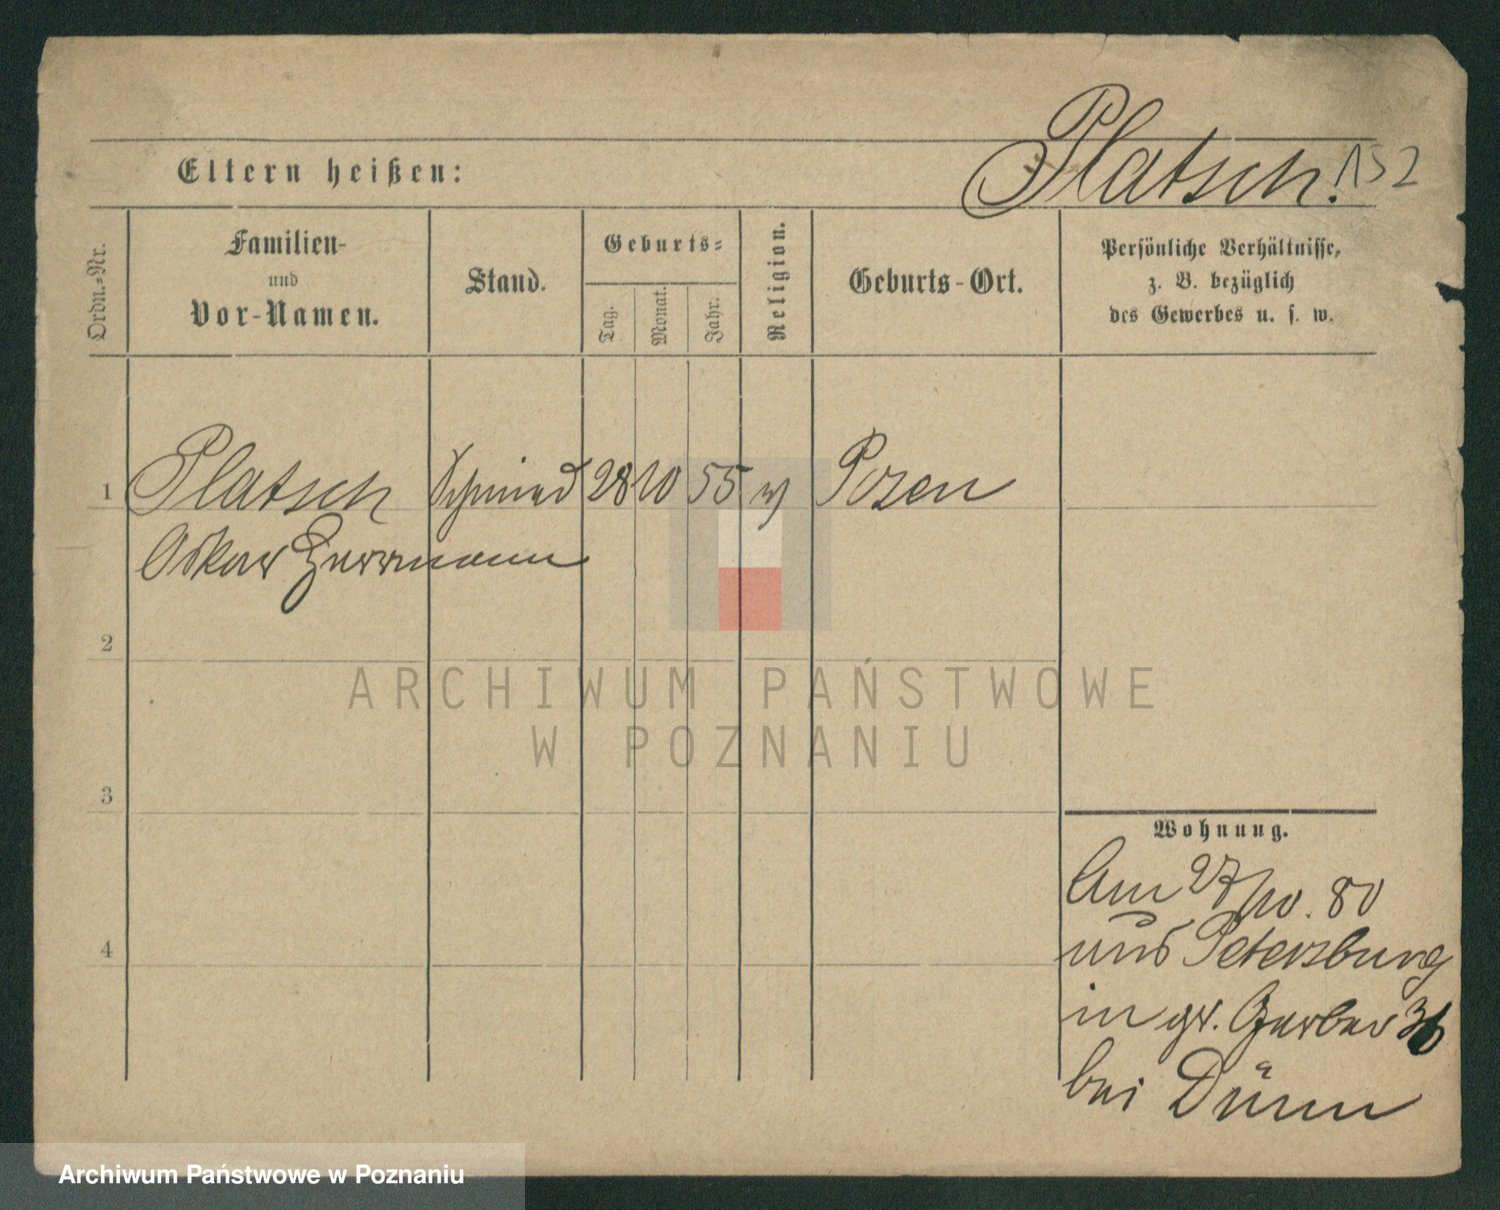 Platsch. 152
Eltern heißen:
Ordn.-Nr.
Familien-
und
Vor-Namen.
Stand.
Geburts-
Tag.
Monat.
Jahr.
Religion.
Geburts-Ort.
Persönliche Verhältnisse,
z. B. bezüglich
des Gewerbes u. s. w.
1 Platsch Schmied 28 10 55 Posen
Oskar Herrmann
2
3
4
Wohnung.
Am 27/10. 80
aus Petersburg
in gr. Gerber 36
bei Dürn
ARCHIWUM PAŃSTWOWE
W POZNANIU
Archiwum Państwowe w Poznaniu